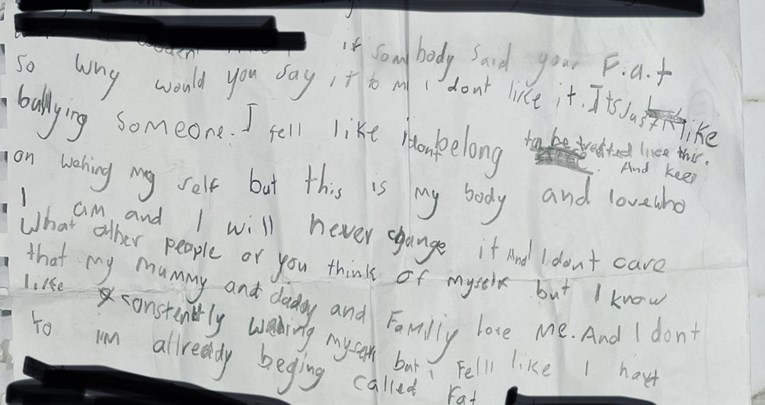 if sombody said your F.a.t
so why would you say it to m I dont like it. Its Just like
bullying someone. I fell like i dont belong to be treated like this.
And keep
on wahing my self but this is my body and love who
I am and I will never change it And I dont care
What other people or you think of myself but I know
that my mummy and daddy and Family love me. And I dont
like constently wahing myself but i fell like I havt
to I'm allready beging called Fat